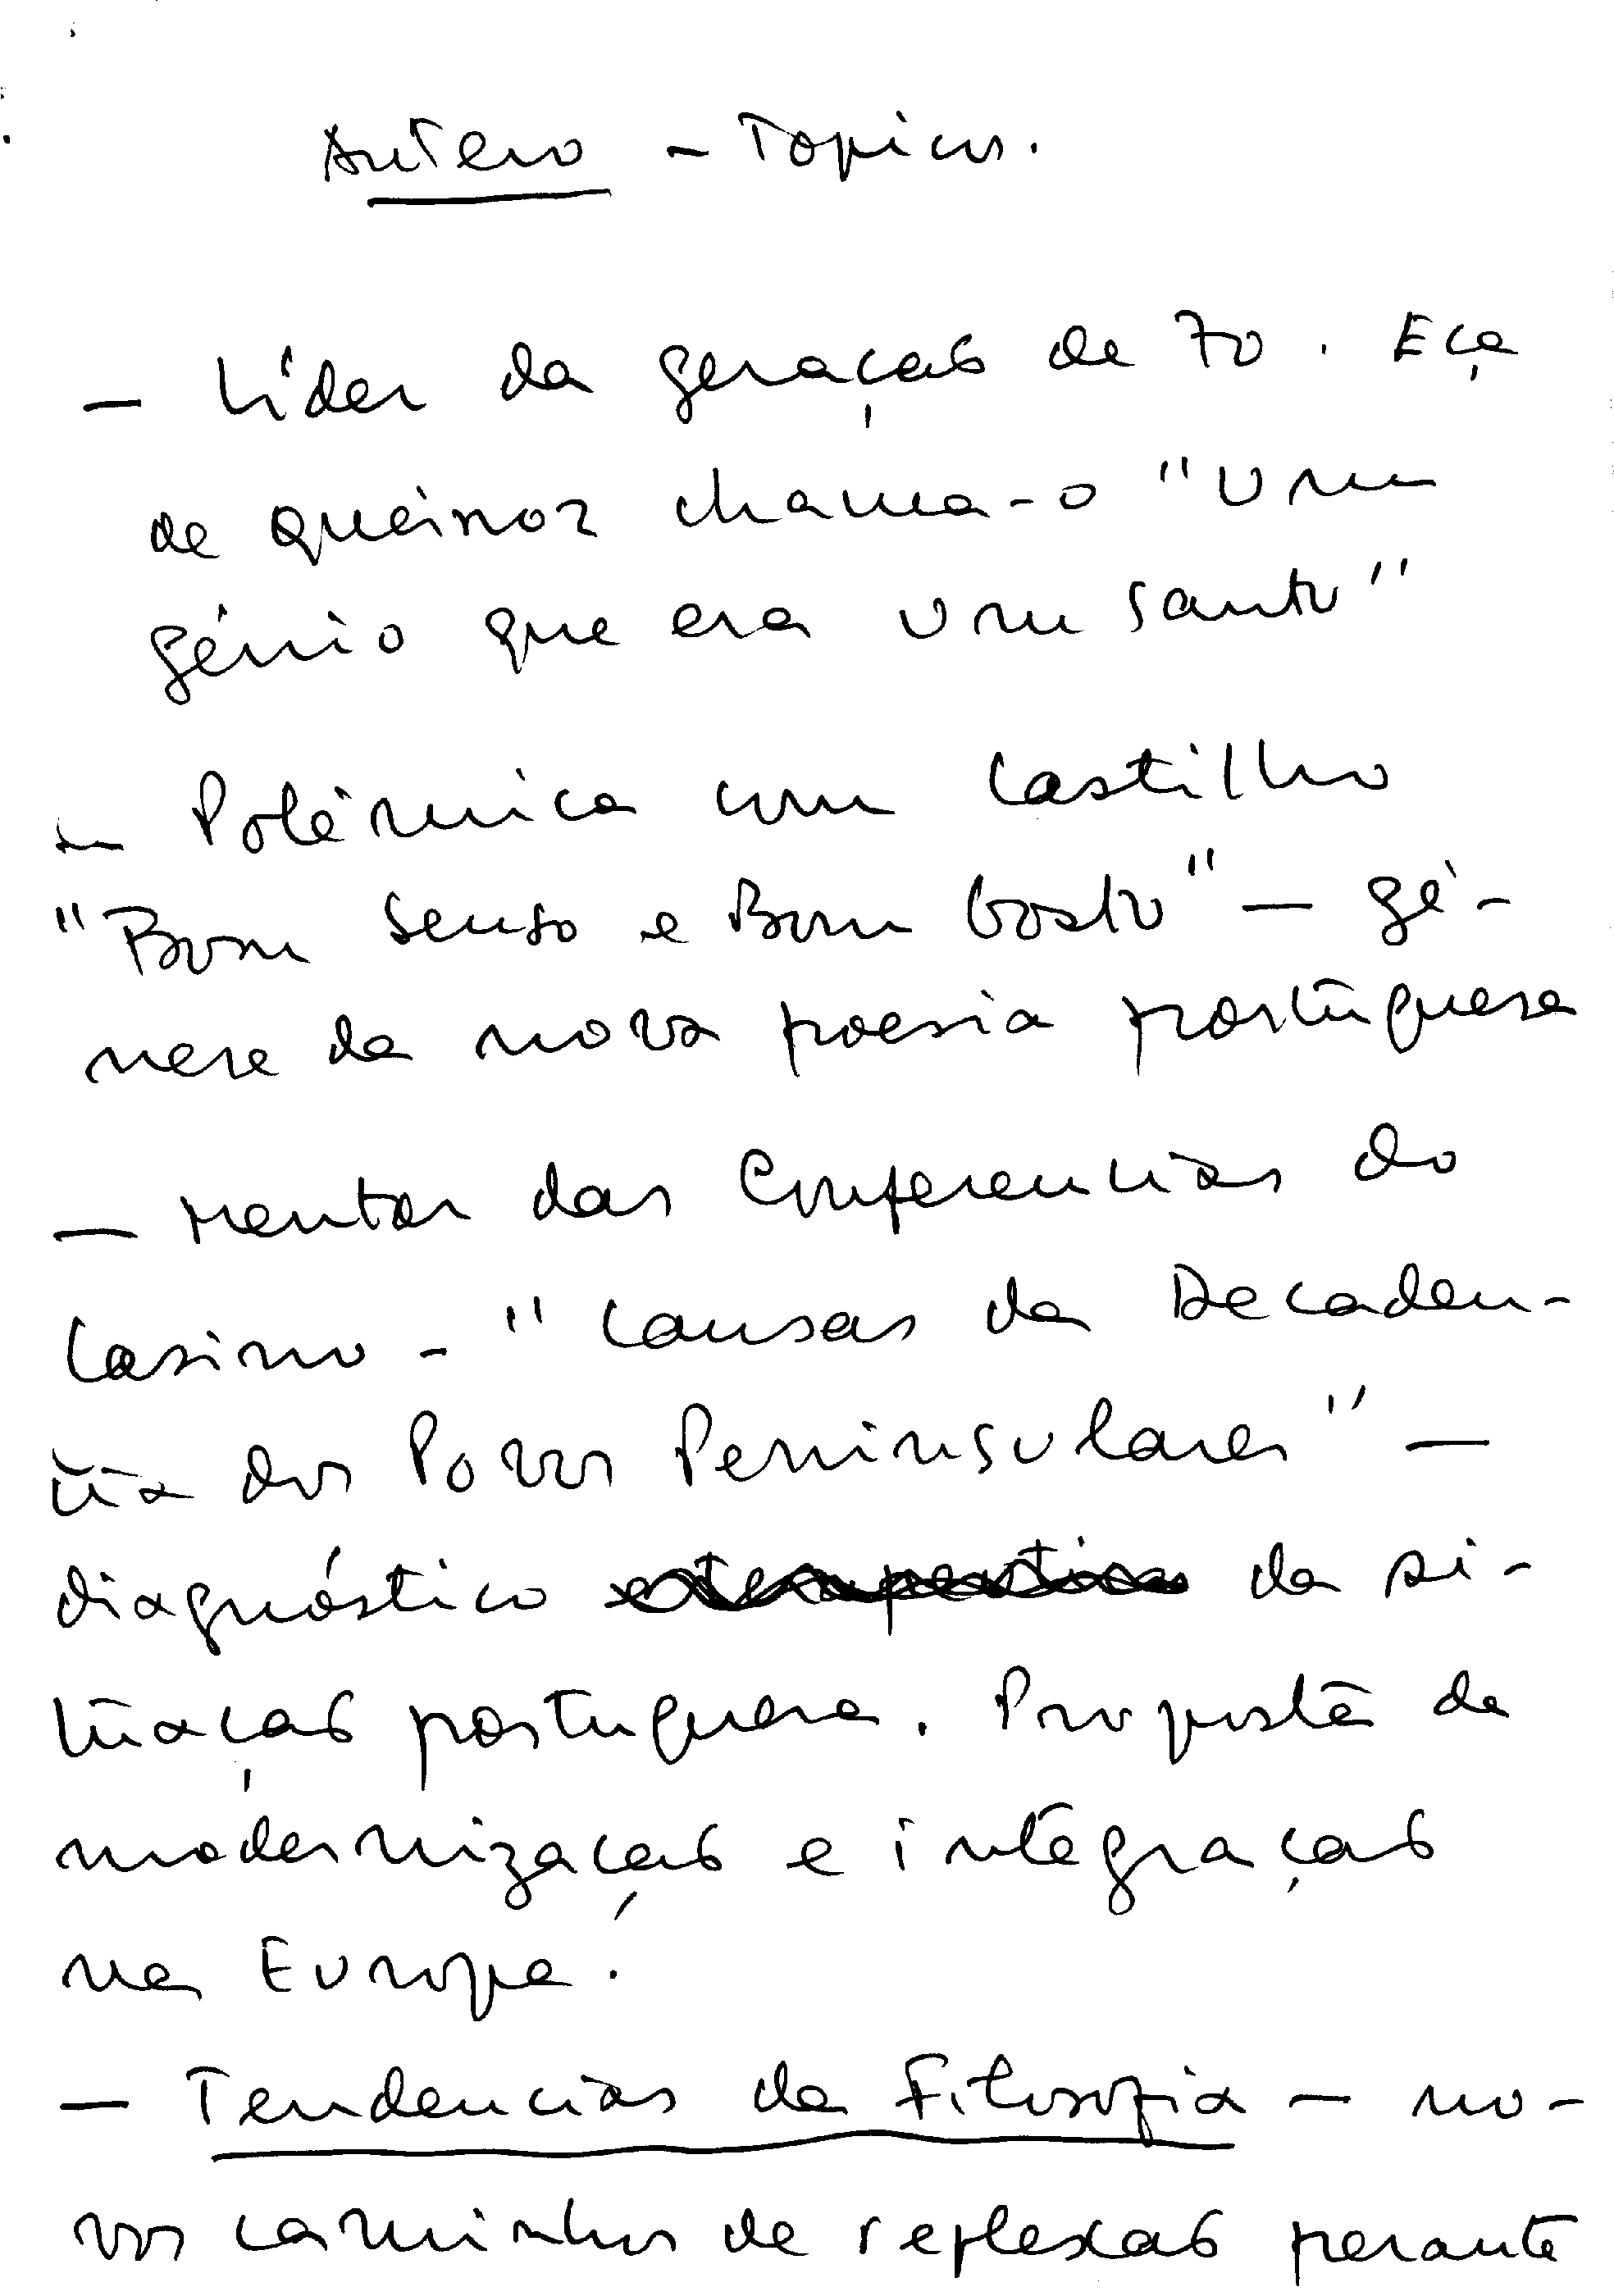 Antero - Topicos.
- Líder da geração de 70. Eça
de Queiroz chama-o "Um
génio que era um santo"
- Polémica com Castilho
"Bom Senso e Bom Gosto" - gé-
nese da nova poesia portuguesa
- Mentor das Conferencias do
Casino - "Causas da Decaden-
cia dos Povos Peninsulares" -
diagnóstico da si-
tuação portuguesa. Proposta de
modernização e integração
na Europa.
- Tendencias da Filosofia - no-
vos caminhos de reflexão perante